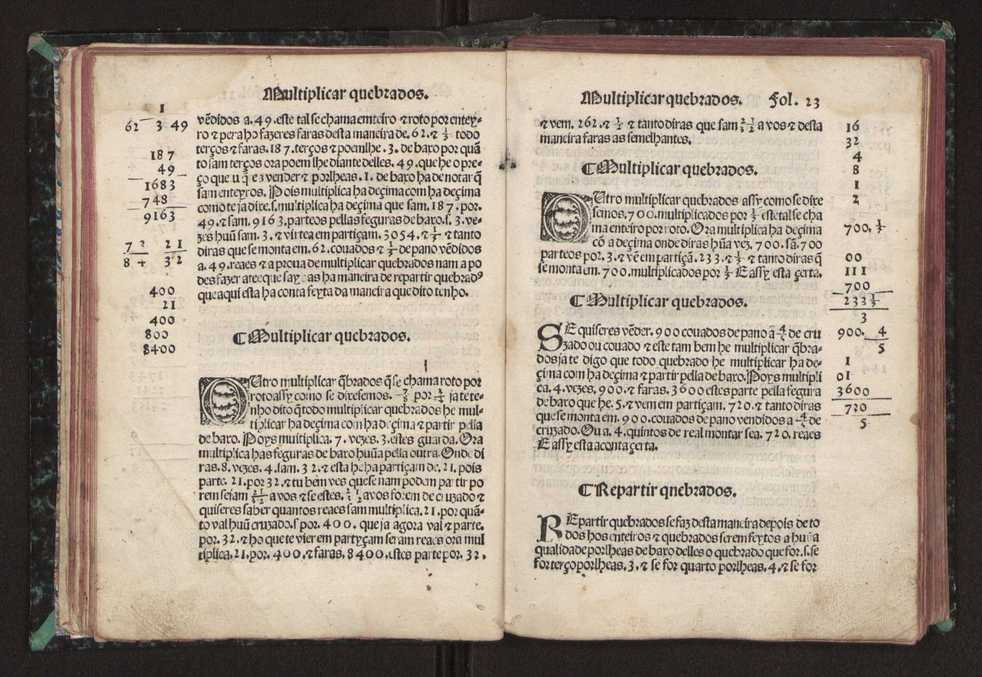 Multiplicar quebrados.
vẽdidos a.49.este tal se chama emteiro ⁊ roto por entey-
ro ⁊ pera ho fazeres faras desta maneira de.62.⁊ 1/3 todo
terços ⁊ faras.187.terços ⁊ poemlhe.3.de baro por quã
to sam terços ora poem lhe diante delles.49.que he o pre-
ço que u q̃ e a vender ⁊ porlheas.1.de baro ha de notar q̃
sam enteyros. Pois multiplica ha deçima com ha deçima
como te ja dixe.s.multiplica ha deçima que sam.187.por.
49.⁊ sam.9163.parteos pellas feguras de baro.s.3.ve-
zes huũ sam.3.⁊ vir tea em partiçam.3054.⁊ 1/3 ⁊ tanto
diras que se monta em.62.couados ⁊ 1/3 de pano vẽdidos
a.49.reaes ⁊ a proua de multiplicar quebrados nam a po
des fazer ate que saybas ha maneira de repartir quebrados
que aqui esta ha conta feyta da maneira que dito tenho.
1
62 3 49
187
49
1683
748
9163
7 2 21
8 4 32
400
21
400
800
8400
Multiplicar quebrados.
OUtro multiplicar q̃brados q̃ se chama roto por
roto assy como se dixesemos. 7/8 por 3/4 ja te te-
nho dito q̃ todo multiplicar quebrados he mul-
tiplicar ha deçima com ha deçima ⁊ partir pella
de baro. Poys multiplica.7.vezes.3.estes guarda. Ora
multiplica has feguras de baro huũa pella outra. Onde di
ras.8.vezes.4.sam.32.⁊ esta he ha partiçam de.21.pois
parte.21.por 32.⁊ tu bem ves que se nam podem partir po
rem seiam 21/32 avos ⁊ se estes. 21/32 avos forem de cruzado ⁊
quiseres saber quantos reaes sam multiplica.21.por quã-
to val huũ cruzado.s.por.400.que ja agora val ⁊ parte.
por.32.⁊ ho que te vier em partyçam seram reaes ora mul
tiplica.21.por.400.⁊ faras.8400.estes parte por.32.
Multiplicar quebrados. Fol. 23
⁊ vem.262.⁊ 1/2 ⁊ tanto diras que sam 21/32 avos ⁊ desta
maneira faras as semelhantes.
Multiplicar quebrados.
OUtro multiplicar quebrados assy como se dixe
semos.700.multiplicados por 1/3 este tal se cha
ma enteiro por roto. Ora multiplica ha deçima
cõ a deçima onde diras hũa vez.700.sã.700
parteos por.3.⁊ vẽ em partiçã.233.⁊ 1/3 ⁊ tanto diras q̃
se monta em.700.multiplicados por 1/3 E assy esta çerta.
16
32
4
8
1
2
700. 1/3
00
111
700
233 1/3
3
Multiplicar quebrados.
SE quiseres vẽder.900 couados de pano a 4/5 de cru
zado ou couado ⁊ este tam bem he multiplicar q̃bra-
dos ja te digo que todo quebrado he multiplicar ha de-
çima com ha deçima ⁊ partir pella de baro. Poys multipli
ca.4.vezes.900.⁊ faras.3600 estes parte pella fegura
de baro que he.5.⁊ vem em partiçam.720.⁊ tanto diras
que se monta em.900.couados de pano vendidos a 4/5 de
cruzado. Ou a.4.quintos de real montar sea.720.reaes
E assy esta a conta çerta.
900. 4
5
1
01
3600
720
5
Repartir quebrados.
REpartir quebrados se faz desta maneira depois de to
dos hos enteiros ⁊ quebrados serem feytos a huũa
qualidade porlheas de baro delles o quebrado que for.s.se
for terço porlheas.3.⁊ se for quarto porlheas.4.⁊ se for